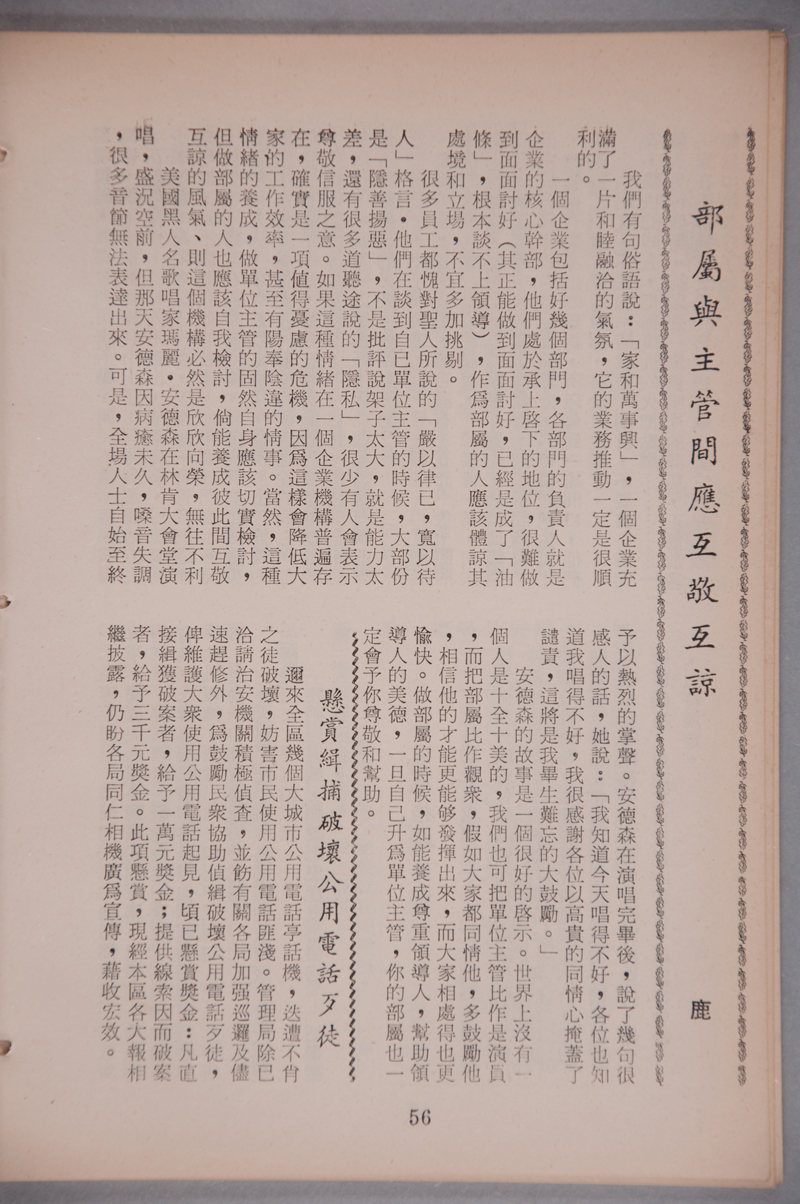 部屬與主管間應互敬互諒
鹿
我們有句俗語說：「家和萬事興」，一個企業充
滿了一片和睦融洽的氣氛，它的業務推動一定是很順
利的。
一個企業包括好幾個部門，各部門的負責人就是
企業的核心幹部，他們處於承上啓下的地位，很難做
到面面討好（其正能做到面面討好，已經是成了「油
條」，根本談不上領導），作爲部屬的人應該體諒其
處境和立場，不宜多加挑剔。
很多員工都愧對聖人所說的「嚴以律已，寬以待
人」格言。他們在談到自已單位主管的時候，大部份
是「隱善揚惡」，不是批評說架子太大，就是能力太
差，還有很多道聽途說的「隱私」，很少有人會表示
尊敬信服之意。如果這種情緒在一個企業機構普遍存
在，確實是一項値得憂慮的危機，因爲這樣會降低大
家的工作效率，甚至有陽奉陰違的情事。當然，這種
情緒的養成，做單位主管的固然自身應該切實檢討，
但做部屬的人也應該自我檢討，倘能養成彼此間互敬
互諒的風氣、則這個機構必然是欣欣向榮，無往不利
美國黑人名歌唱家瑪麗。安德森在林肯大會堂演
唱，盛況空前，但那天安德森因病癒未久，嗓音失調
，很多音節無法表達出來。可是，全場人士自始至終
予以熱烈的掌聲。安德森在演唱完畢後，說了幾句很
感人的話，她說：「我知道今天唱得不好，各位也知
道我唱得不好，我很感謝各位以高貴的同情心掩蓋了
譴責，這將是我畢生難忘的大鼓勵。」
安德森的故事是一個很好的啓示。世界上沒有一
個人是十全十美的，我們也可把單位主管比作是演員
，而把部屬比作觀衆，假如大家都同情他，多鼓勵他
，相信他的才能更能够發揮出來，而大家相處得也更
愉快。做部屬的時候，如能養成尊重領導人，幫助領
導人的美德，一旦自己升爲單位主管，你的部屬也一
定會予你尊敬和幫助。
懸賞緝捕破壞公用電話歹徒
邇來全區幾個大城市公用電話亭話機，迭遭不肖
之徒破壞，妨害市民使用公用電話匪淺。管理局除已
洽請治安機關積極偵查，並飭有關各局加强巡邏及儘
速趕修外，爲鼓勵民衆協助偵緝破壞公用電話歹徒，
俾維護大衆使用公用電話起見，頃已懸賞獎金：凡直
接緝獲破案者，給予一萬元獎金；提供線索因而破案
者，給予三千元獎金。此項懸賞，現經本區各大報相
繼披露，仍盼各局同仁相機廣爲宣傳，藉收宏效。
56